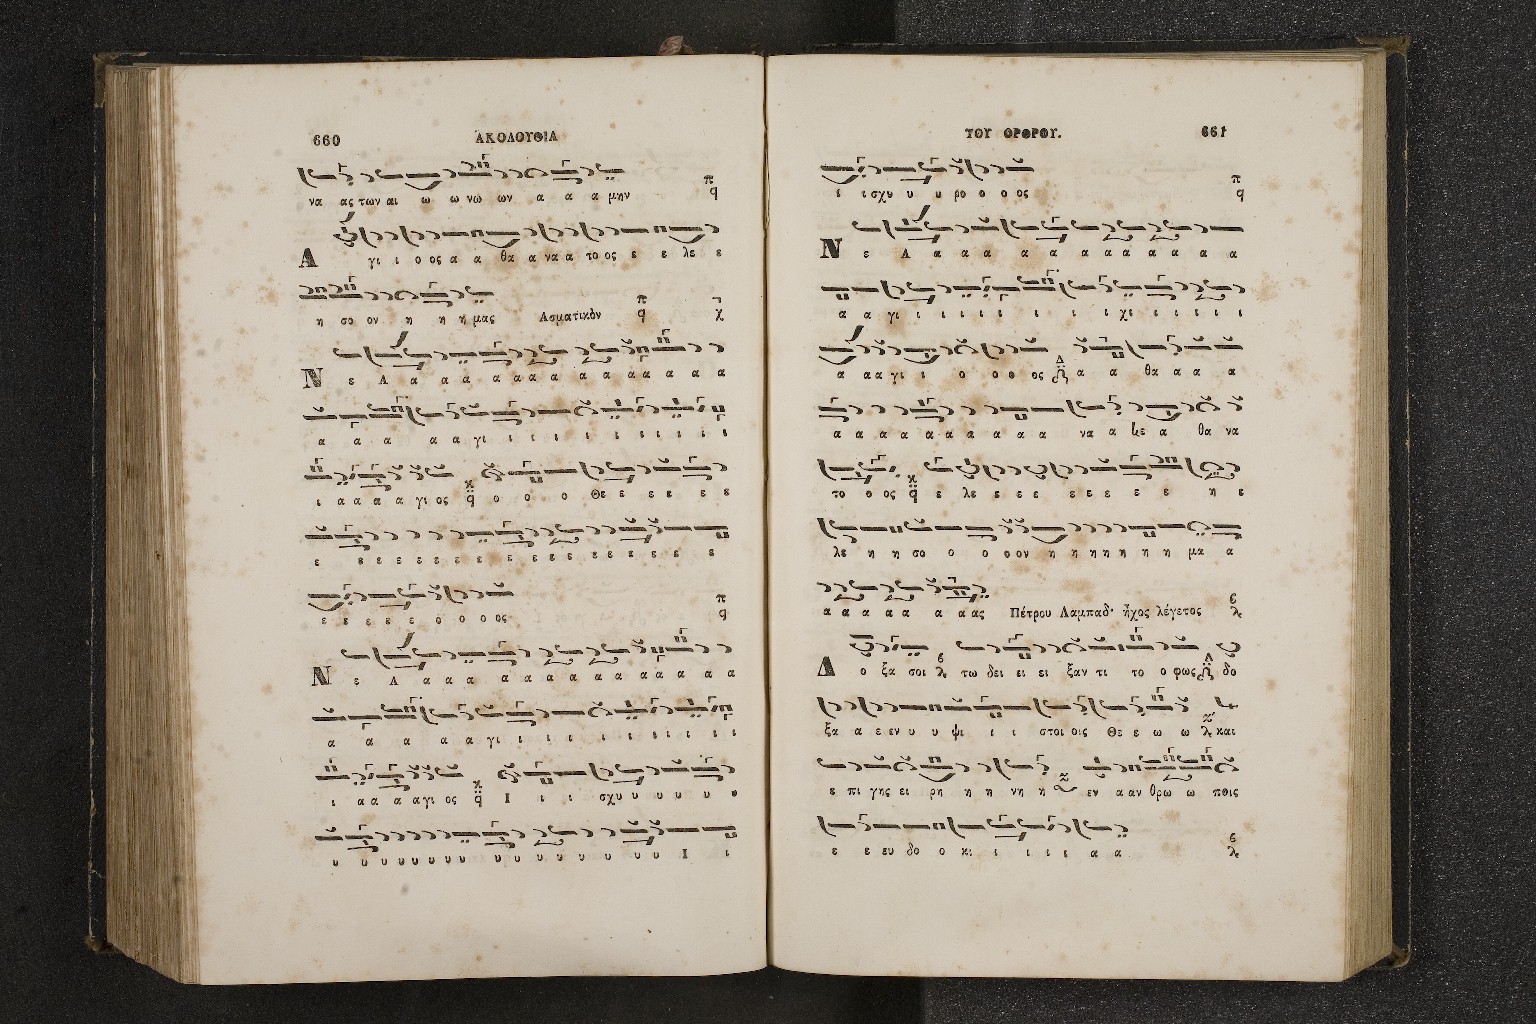 660 ΑΚΟΛΟΥΘΙΑ
να ας των αι ω ω νω ων α α α μην
Α γι ι ο ος α α θα α να α το ος ε ε λε ε
η σο ον η η ή μας Ασματικὸν
Ν ε Α α α α α α α α α α α α α α α
α α α α α γι ι ι ι ι ι ι ι ι ι
ι α α α α γι ος ο ο ο Θε ε ε ε ε ε
ε ε ε ε ε ε ε ε ε ε ε ε ε ε ε ε ε ε ε
ε ε ε ε ε ο ο ο ος
Ν ε Α α α α α α α α α α α α α α α
α α α α α γι ι ι ι ι ι ι ι ι ι
ι α α α α γι ος Ι ι ι σχυ υ υ υ υ υ
υ υ υ υ υ υ υ υ υ υ υ υ υ υ υ υ Ι ι
ΤΟΥ ΟΡΘΡΟΥ. 661
ι ι σχυ υ υ ρο ο ο ος
Ν ε Α α α α α α α α α α α α
α α γι ι ι ι ι ι ι ι ι χι ι ι ι ι ι
α α α γι ι ο ο ο ος α α θα α α α
α α α α α α α α α α να α α θα να
το ο ος ε λε ε ε ε ε ε ε ε ε η ε
λε η η σο ο ο ο ον η η η η η η η μα α
α α α α α α α ας Πέτρου Λαμπαδ· ἦχος λέγετος
Δ ο ξα σοι τω δει ει ει ξαν τι το ο φως δο
ξα α ε εν υ υ ψι ι ι στοι οις Θε ε ω ω και
ε πι γης ει ρη η η νη η εν α αν θρω ω ποις
ε ε ευ δο ο κι ι ι ι ι α α